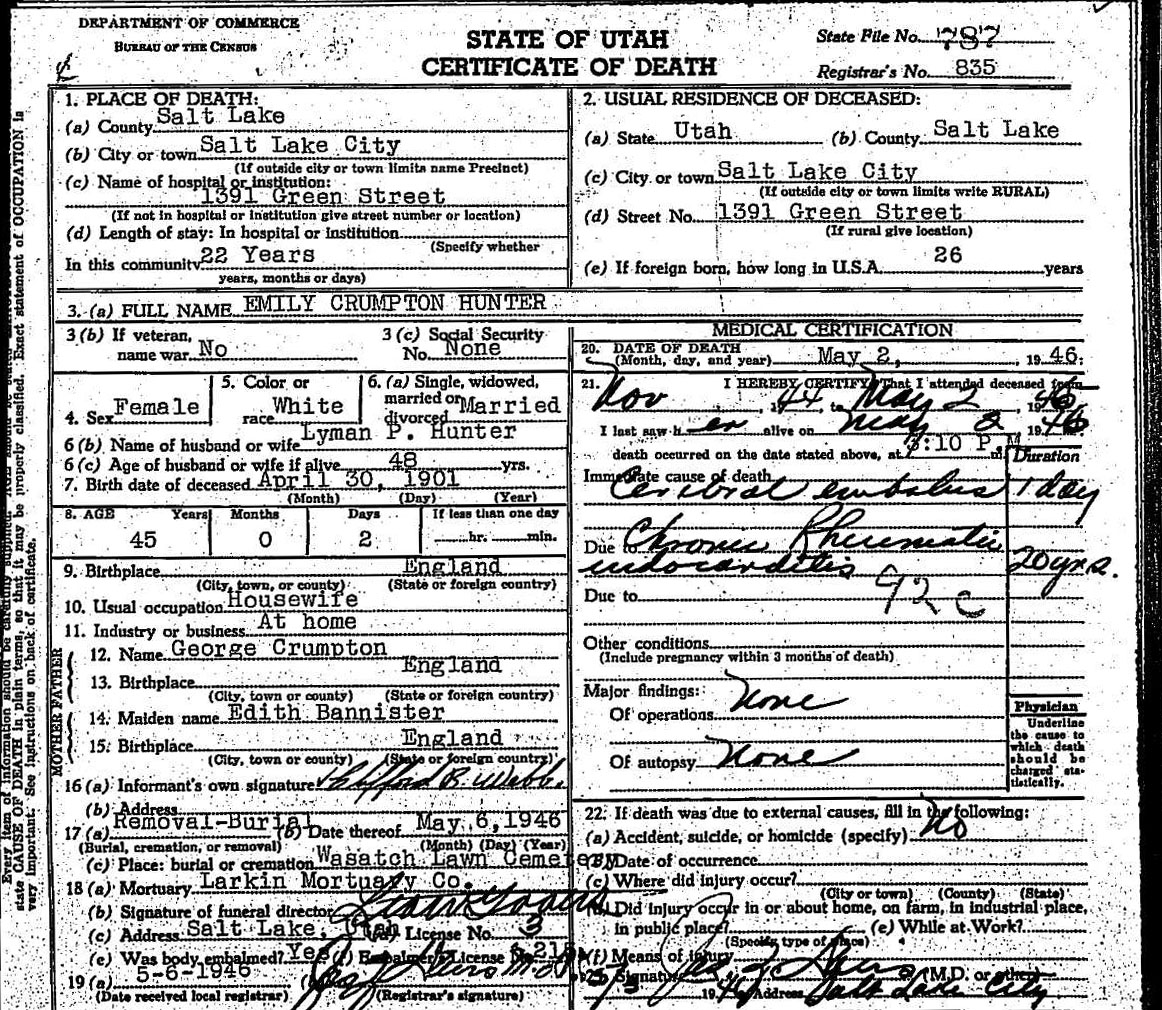 DEPARTMENT OF COMMERCE
BUREAU OF THE CENSUS
STATE OF UTAH
CERTIFICATE OF DEATH
State File No. 787
Registrar's No. 835
1. PLACE OF DEATH:
(a) County Salt Lake
(b) City or town Salt Lake City
(If outside city or town limits name Precinct)
(c) Name of hospital or institution:
1391 Green Street
(If not in hospital or institution give street number or location)
(d) Length of stay: In hospital or institution
(Specify whether
In this community 22 Years
years, months or days)
2. USUAL RESIDENCE OF DECEASED:
(a) State Utah (b) County Salt Lake
(c) City or town Salt Lake City
(If outside city or town limits write RURAL)
(d) Street No. 1391 Green Street
(If rural give location)
(e) If foreign born, how long in U.S.A. 26 years
3. (a) FULL NAME EMILY CRUMPTON HUNTER
3 (b) If veteran, name war No
3 (c) Social Security No. None
4. Sex Female
5. Color or race White
6. (a) Single, widowed, married or divorced Married
6 (b) Name of husband or wife Lyman P. Hunter
6 (c) Age of husband or wife if alive 48 yrs.
7. Birth date of deceased April 30, 1901
(Month) (Day) (Year)
8. AGE Years Months Days If less than one day
45 0 2 hr. min.
9. Birthplace England
(City, town, or county) (State or foreign country)
10. Usual occupation Housewife
11. Industry or business At home
FATHER
12. Name George Crumpton
13. Birthplace England
(City, town or county) (State or foreign country)
MOTHER
14. Maiden name Edith Bannister
15. Birthplace England
(City, town or county) (State or foreign country)
16 (a) Informant's own signature Clifford B. Webb
(b) Address
17 (a) Removal-Burial (b) Date thereof May 6, 1946
(Burial, cremation, or removal) (Month) (Day) (Year)
(c) Place: burial or cremation Wasatch Lawn Cemetery
18 (a) Mortuary Larkin Mortuary Co.
(b) Signature of funeral director
(c) Address Salt Lake, Utah (d) License No. 3
(e) Was body embalmed? Yes (f) Embalmer's License No.
19 (a) 5-6-1946
(Date received local registrar) (Registrar's signature)
MEDICAL CERTIFICATION
20. DATE OF DEATH
(Month, day, and year) May 2, 1946
21. I HEREBY CERTIFY, That I attended deceased from
Nov, 1944, to May 2 1946
I last saw h er alive on May 2 1946
death occurred on the date stated above, at 3:10 P.M. m.
Duration
Immediate cause of death
Cerebral embolus 1 day
Due to Chronic Rheumatic
endocarditis 20 yrs.
92c
Due to
Other conditions
(Include pregnancy within 3 months of death)
Major findings:
Of operations None
Of autopsy None
Physician
Underline
the cause to
which death
should be
charged sta-
tistically.
22. If death was due to external causes, fill in the following:
(a) Accident, suicide, or homicide (specify) No
(b) Date of occurrence
(c) Where did injury occur?
(City or town) (County) (State)
(d) Did injury occur in or about home, on farm, in industrial place,
in public place? (e) While at Work?
(Specify type of place)
(f) Means of injury
23. Signature (M.D. or other)
5/3 1946 Address Salt Lake City
Every item of information should be carefully supplied.
Exact statement of OCCUPATION is
state CAUSE OF DEATH in plain terms, so that it may be properly classified.
very important. See instructions on back of certificate.